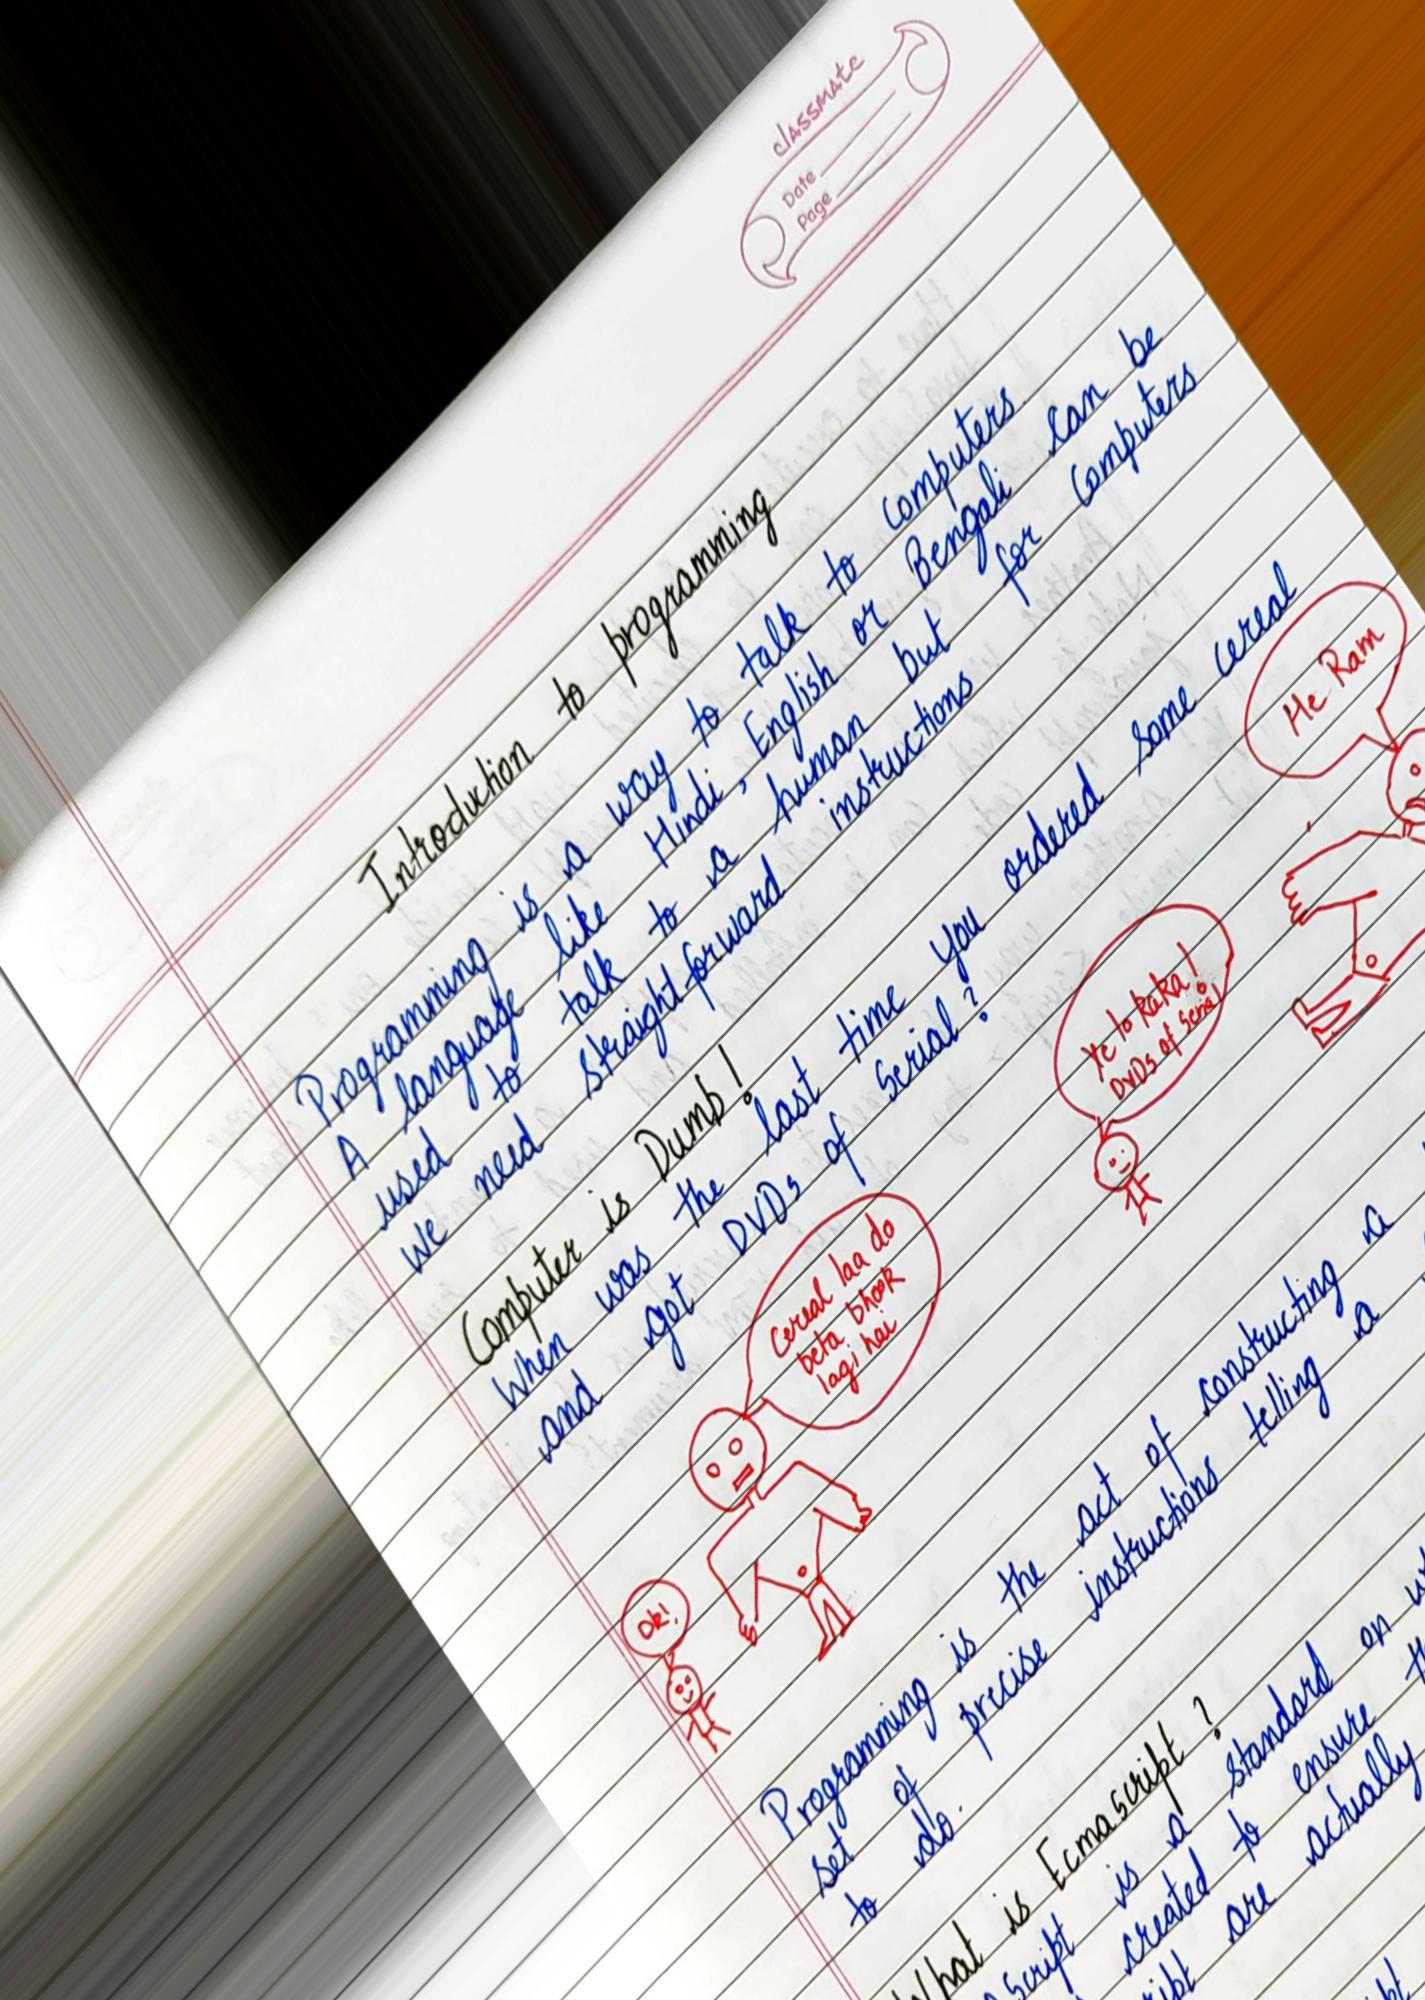 classmate
Date
Page
Introduction to programming
Programming is a way to talk to computers.
A language like Hindi, English or Bengali can be
used to talk to a human but for computers
we need straight forward instructions
Computer is Dumb!
When was the last time you ordered some cereal
and got DVDs of Serial?
He Ram
Ye lo kaka!
DVDs of Serial
Cereal laa do
beta bhook
lagi hai
Ok!
Programming is the act of constructing a
set of precise instructions telling a
to do.
What is Ecmascript?
script is a standard on
created to ensure
are actually